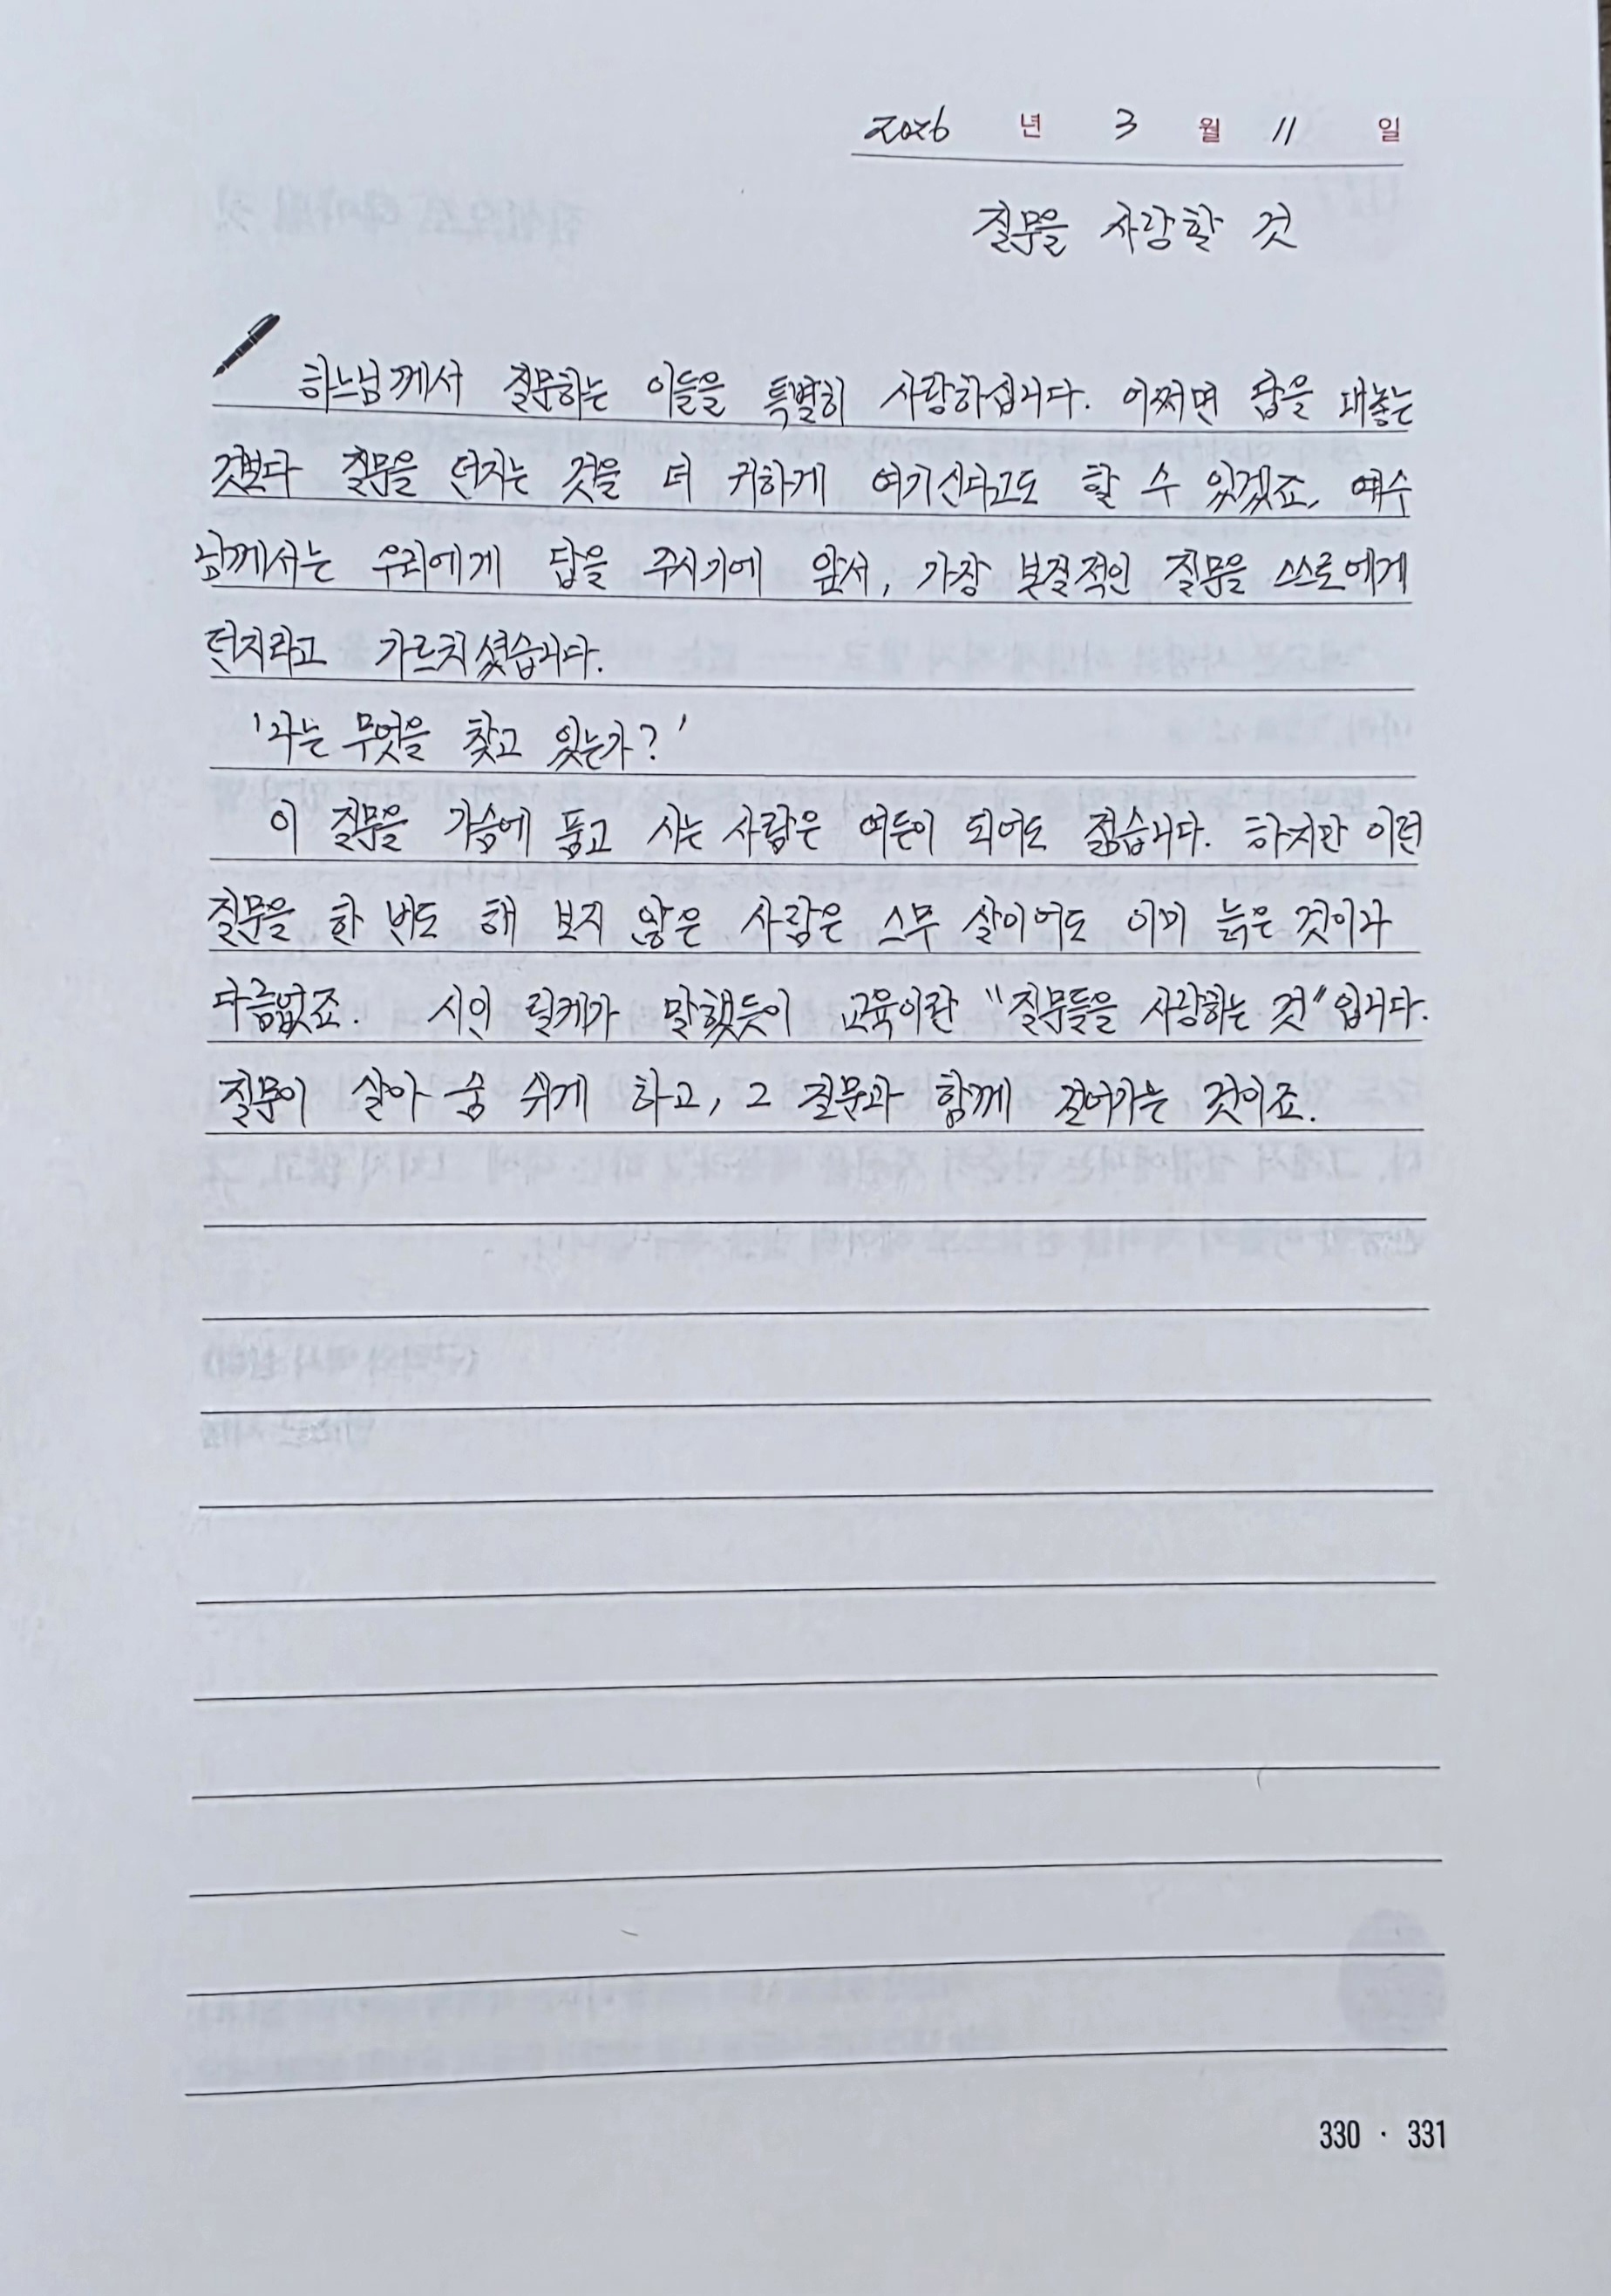 2026 년 3 월 11 일
질문을 사랑할 것
하느님께서 질문하는 이들을 특별히 사랑하십니다. 어쩌면 답을 내놓는
것보다 질문을 던지는 것을 더 귀하게 여기신다고도 할 수 있겠죠. 예수
님께서는 우리에게 답을 주시기에 앞서, 가장 본질적인 질문을 스스로에게
던지라고 가르치셨습니다.
'나는 무엇을 찾고 있는가?'
이 질문을 가슴에 품고 사는 사람은 여든이 되어도 젊습니다. 하지만 이런
질문을 한 번도 해 보지 않은 사람은 스무 살이어도 이미 늙은 것이나
다름없죠. 시인 릴케가 말했듯이 교육이란 "질문들을 사랑하는 것"입니다.
질문이 살아 숨 쉬게 하고, 그 질문과 함께 걸어가는 것이죠.
330 · 331